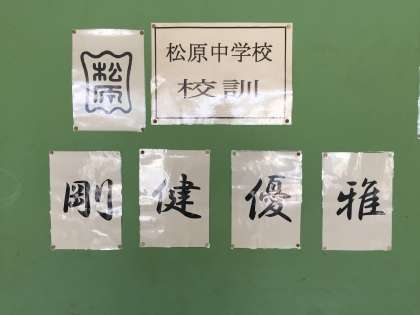 松原
松原中学校
校訓
剛健優雅